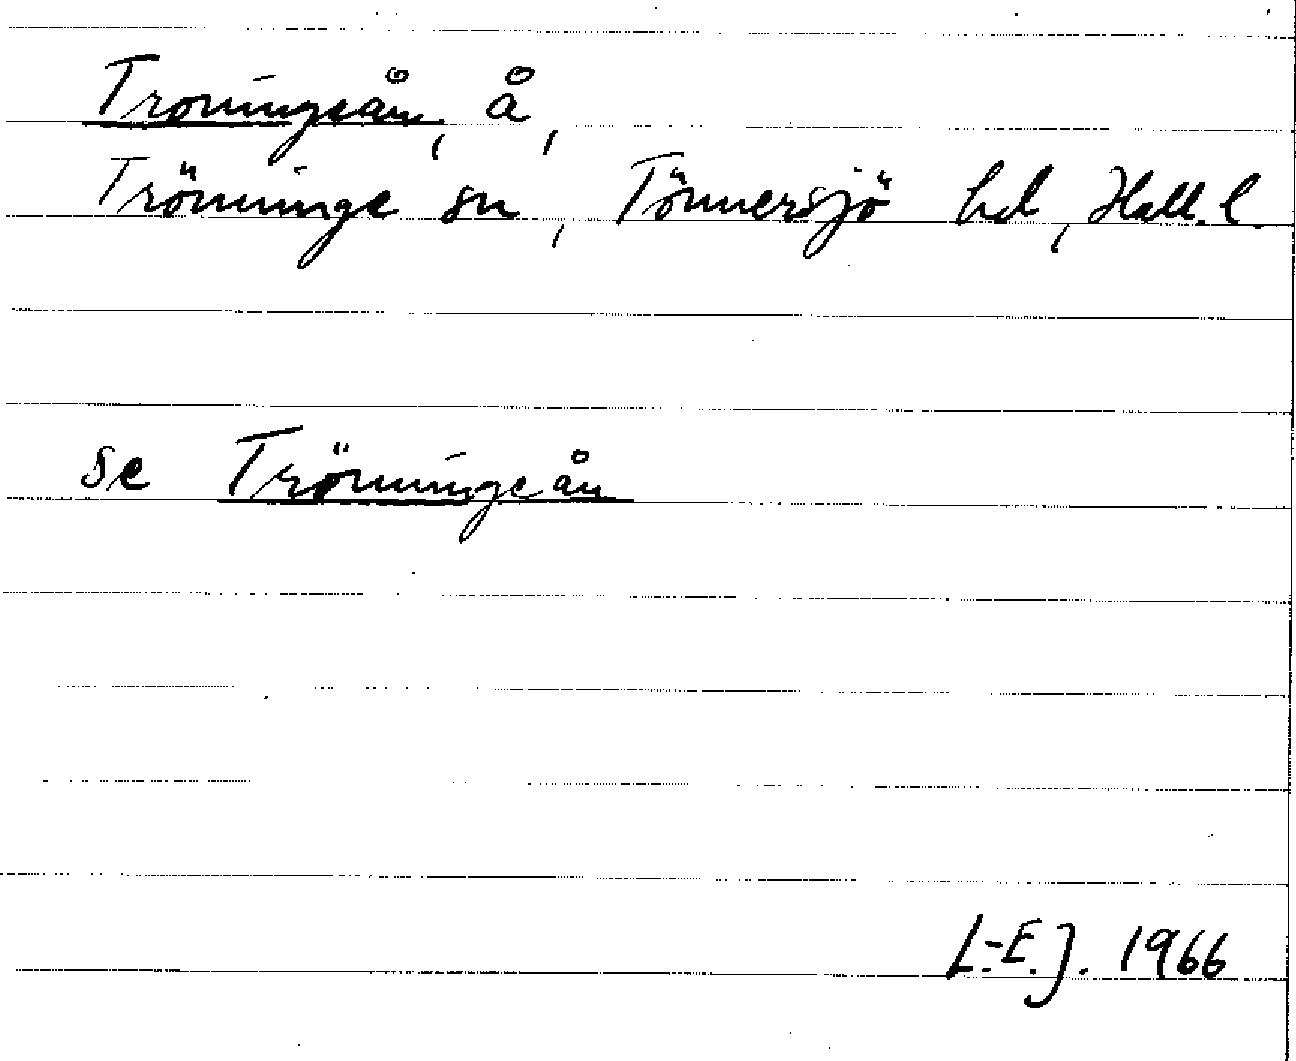 Troningeån, å,
Trönninge sn, Tönnersjö hd, Hall. l.
se Trönningeån
L.-E.J. 1966